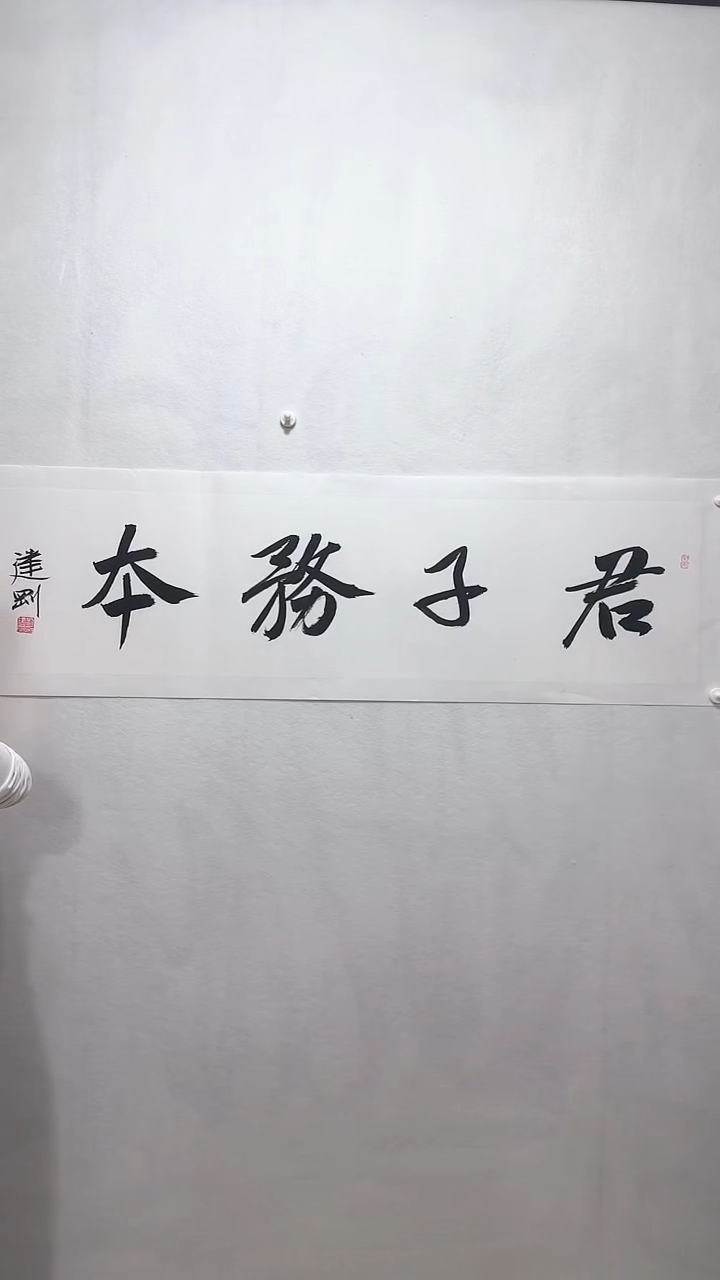 君子務本
達剛